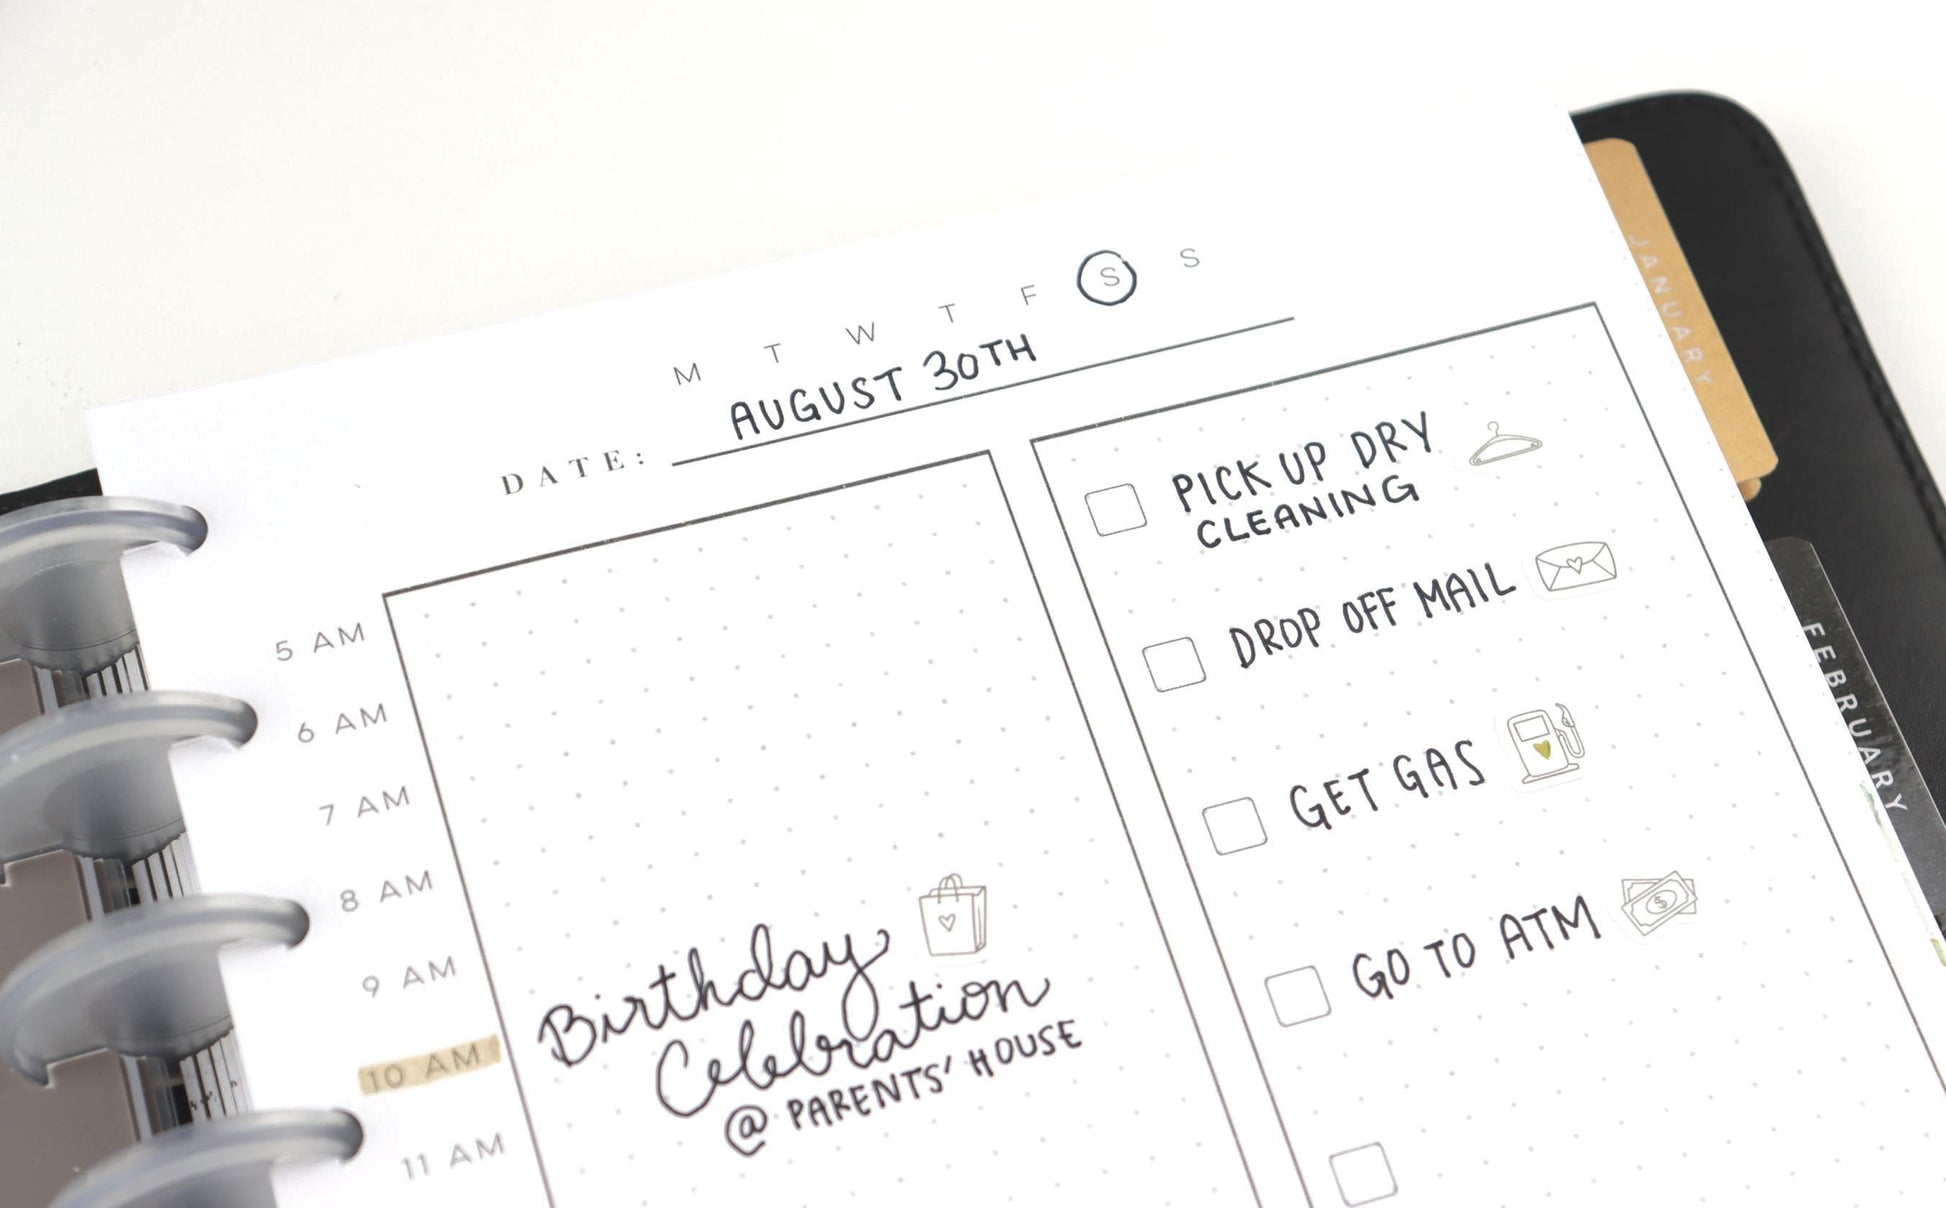 M T W T F S S
DATE: AUGUST 30TH
5 AM
6 AM
7 AM
8 AM
9 AM
10 AM
11 AM
Birthday
Celebration
@ PARENTS' HOUSE
PICK UP DRY
CLEANING
DROP OFF MAIL
GET GAS
GO TO ATM
$
JANUARY
FEBRUARY